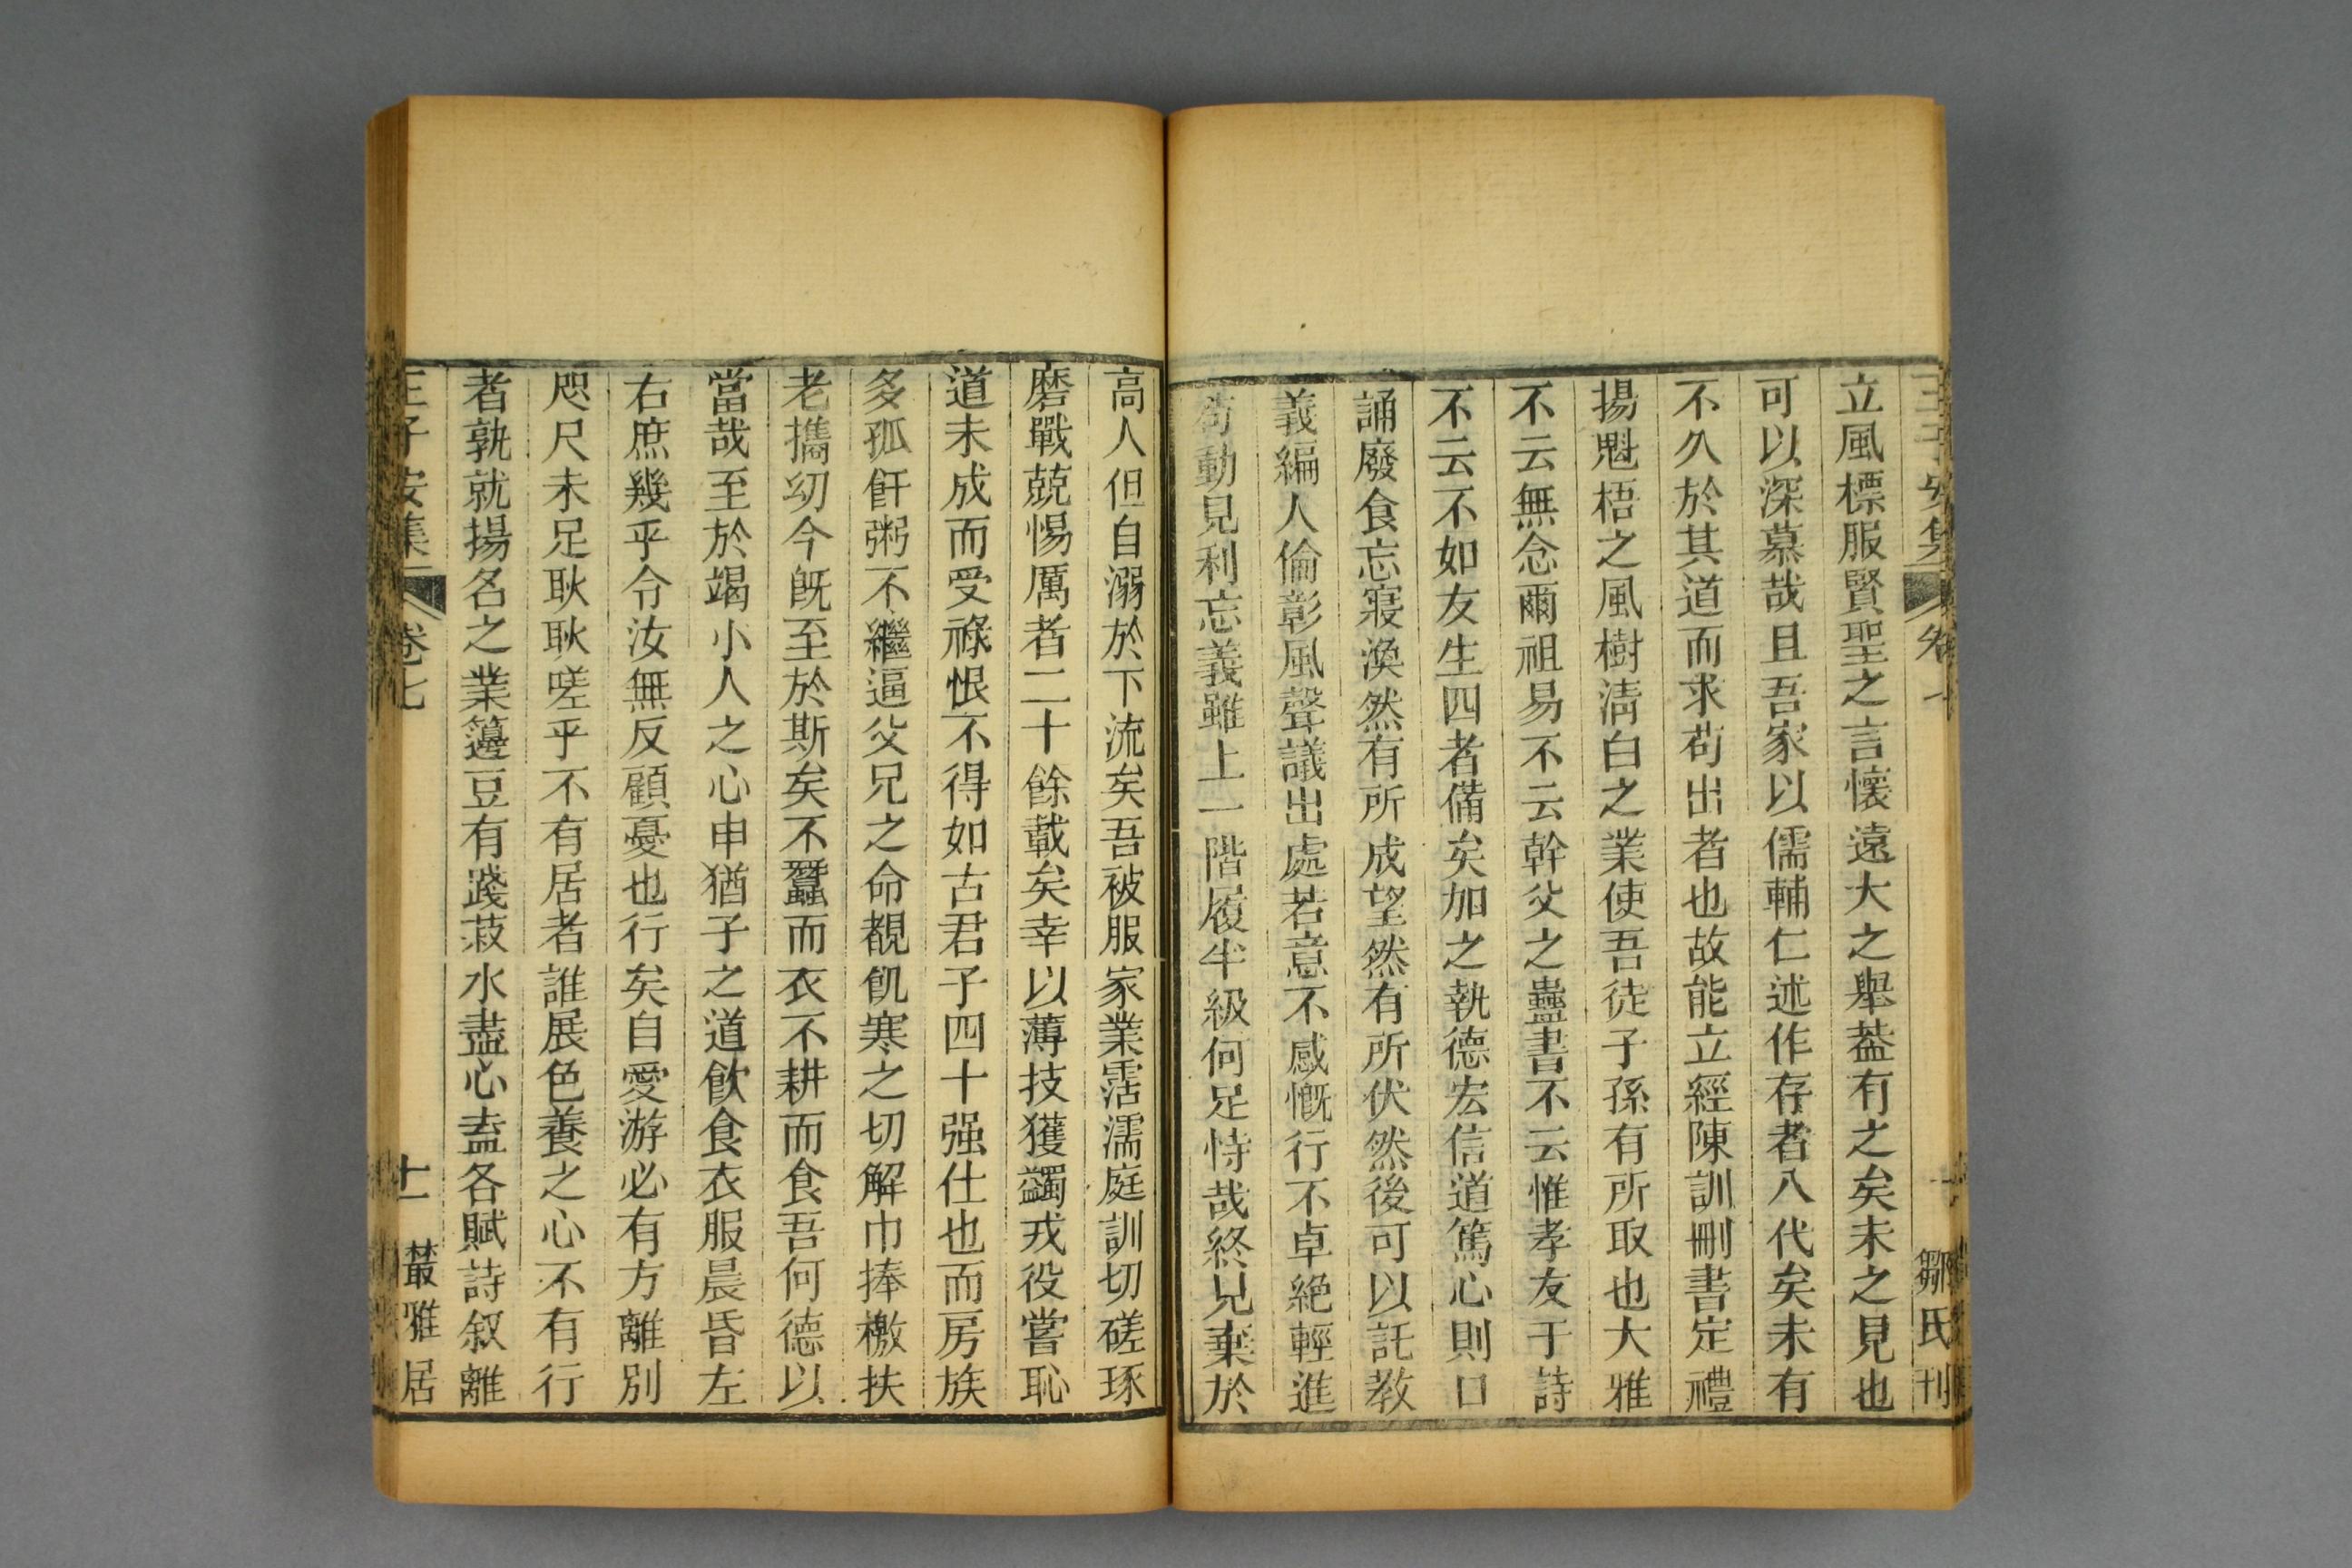 立風標服賢聖之言懷遠大之舉葢有之矣未之見也
可以深慕哉且吾家以儒輔仁述作存者八代矣未有
不久於其道而求苟出者也故能立經陳訓刪書定禮
揚魁梧之風樹淸白之業使吾徒子孫有所取也大雅
不云無念爾祖易不云幹父之蠱書不云惟孝友于詩
不云不如友生四者備矣加之執德宏信道篤心則口
誦廢食忘寢渙然有所成望然有所伏然後可以託教
義編人倫彰風聲議出處若意不感慨行不卓絕輕進
苟動見利忘義雖上一階履半級何足恃哉終見棄於
高人但自溺於下流矣吾被服家業霑濡庭訓切磋琢
磨戰兢惕厲者二十餘載矣幸以薄技獲蠲戎役嘗恥
道未成而受祿恨不得如古君子四十强仕也而房族
多孤飦粥不繼逼父兄之命覩飢寒之切解巾捧檄扶
老攜幼今旣至於斯矣不蠶而衣不耕而食吾何德以
當哉至於竭小人之心申猶子之道飮食衣服晨昏左
右庶幾乎令汝無反顧憂也行矣自愛游必有方離別
咫尺未足耿耿嗟乎不有居者誰展色養之心不有行
者孰就揚名之業籩豆有踐菽水盡心盍各賦詩叙離
王子安集 卷七 十一 叢雅居
鄒氏刊